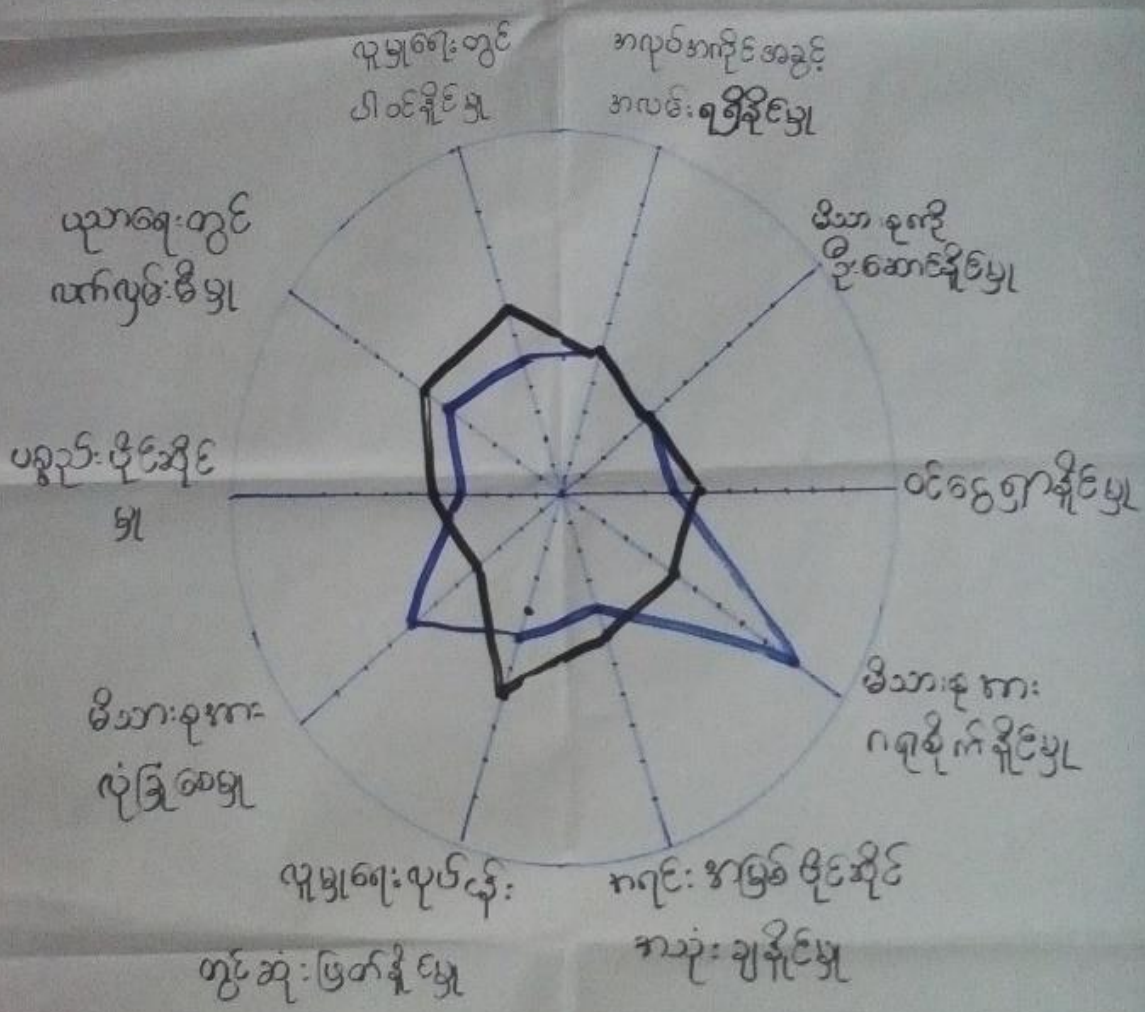 လူမှုရေးတွင်
ပါဝင်နိုင်မှု
အလုပ်အကိုင်အခွင့်
အလမ်းရရှိနိုင်မှု
မိသားစုကို
ဦးဆောင်နိုင်မှု
ဝင်ငွေရှာနိုင်မှု
မိသားစုအား
ဂရုစိုက်နိုင်မှု
အရင်းအမြစ်ပိုင်ဆိုင်
အသုံးချနိုင်မှု
လူမှုရေးလုပ်ငန်း
တွင်ဆုံးဖြတ်နိုင်မှု
မိသားစုအား
လုံခြုံစေမှု
ပစ္စည်းပိုင်ဆိုင်
မှု
ပညာရေးတွင်
လက်လှမ်းမီမှု